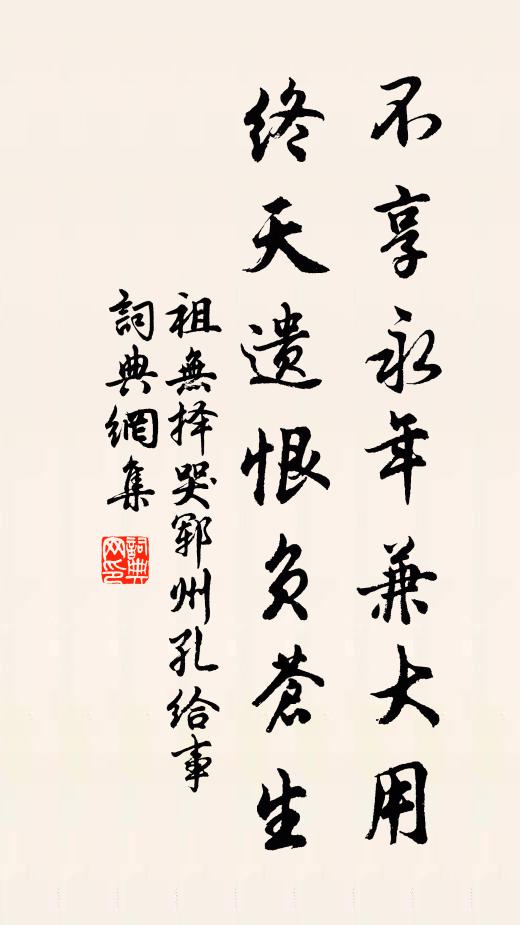 不享永年兼大用
终天遗恨负苍生
祖無择哭郓州孔给事
詞典網集
詞典网印